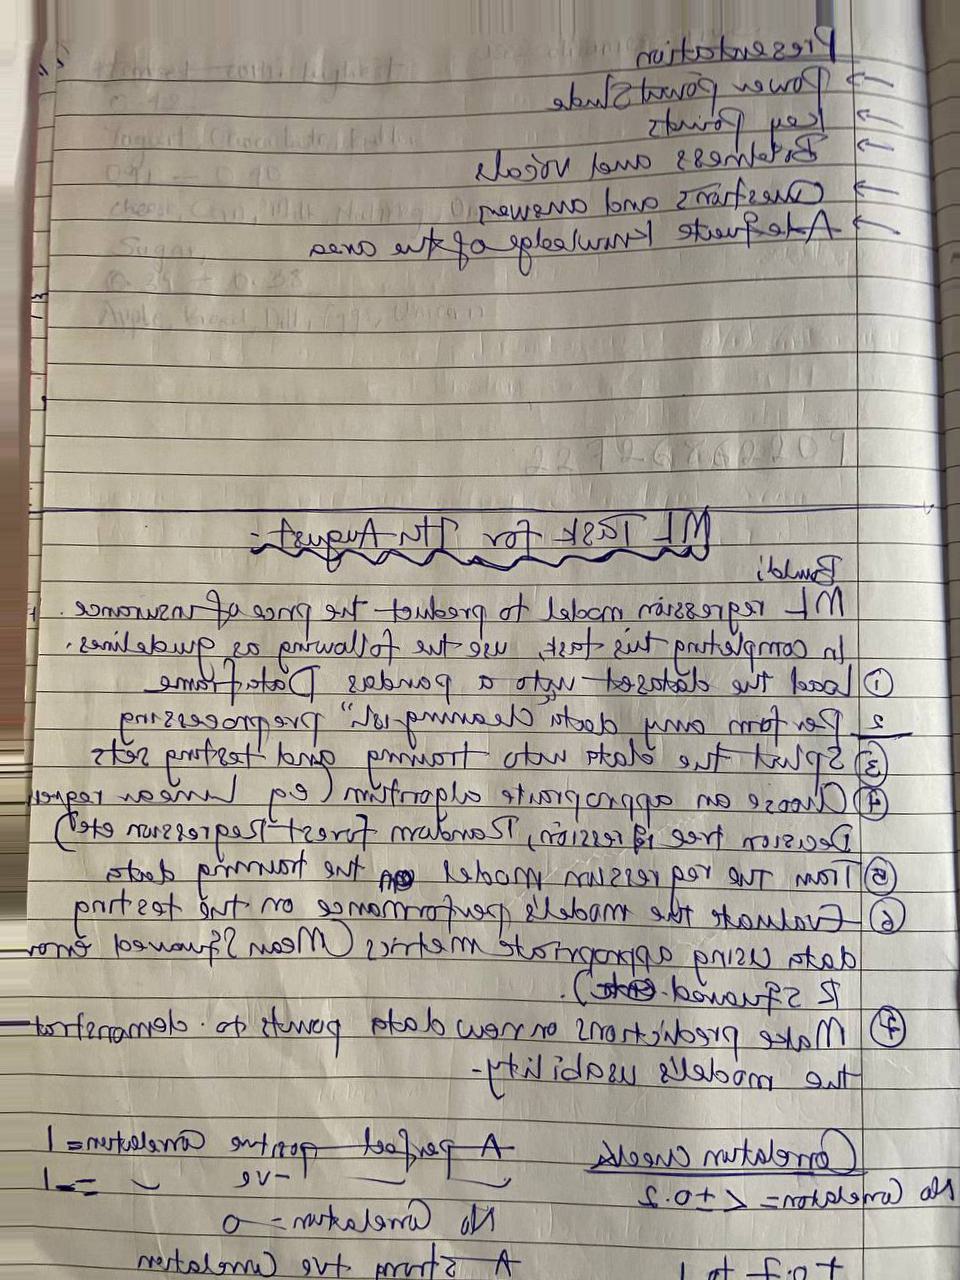 Presentation
→ Power point Slide
→ Key points
→ Boldness and vocals
→ Questions and answers
→ Adequate knowledge of the area
ML Task for 7th August:
Build:
ML regression model to product the price of insurance.
In completing this task, use the following as guidelines.
① Load the dataset into a pandas Dataframe
2 Perform any data "cleaning or" preprocessing
③ Split the data into training and testing sets
④ Choose an appropriate algorithm (eg Linear regre
Decision tree regression, Random forest Regression etc)
⑤ Train the regression model the training data
⑥ Evaluate the model's performance on the testing
data using appropriate metrics (Mean Squared error
R squared etc).
⑦ Make predictions on new data points to demonstrat
the model's usability-
Correlation cheeks A perfect positive Correlation = 1
No Correlation = < ±0.2 -ve = -1
No Correlation = 0
A strong +ve Correlation
+0.7 to 1